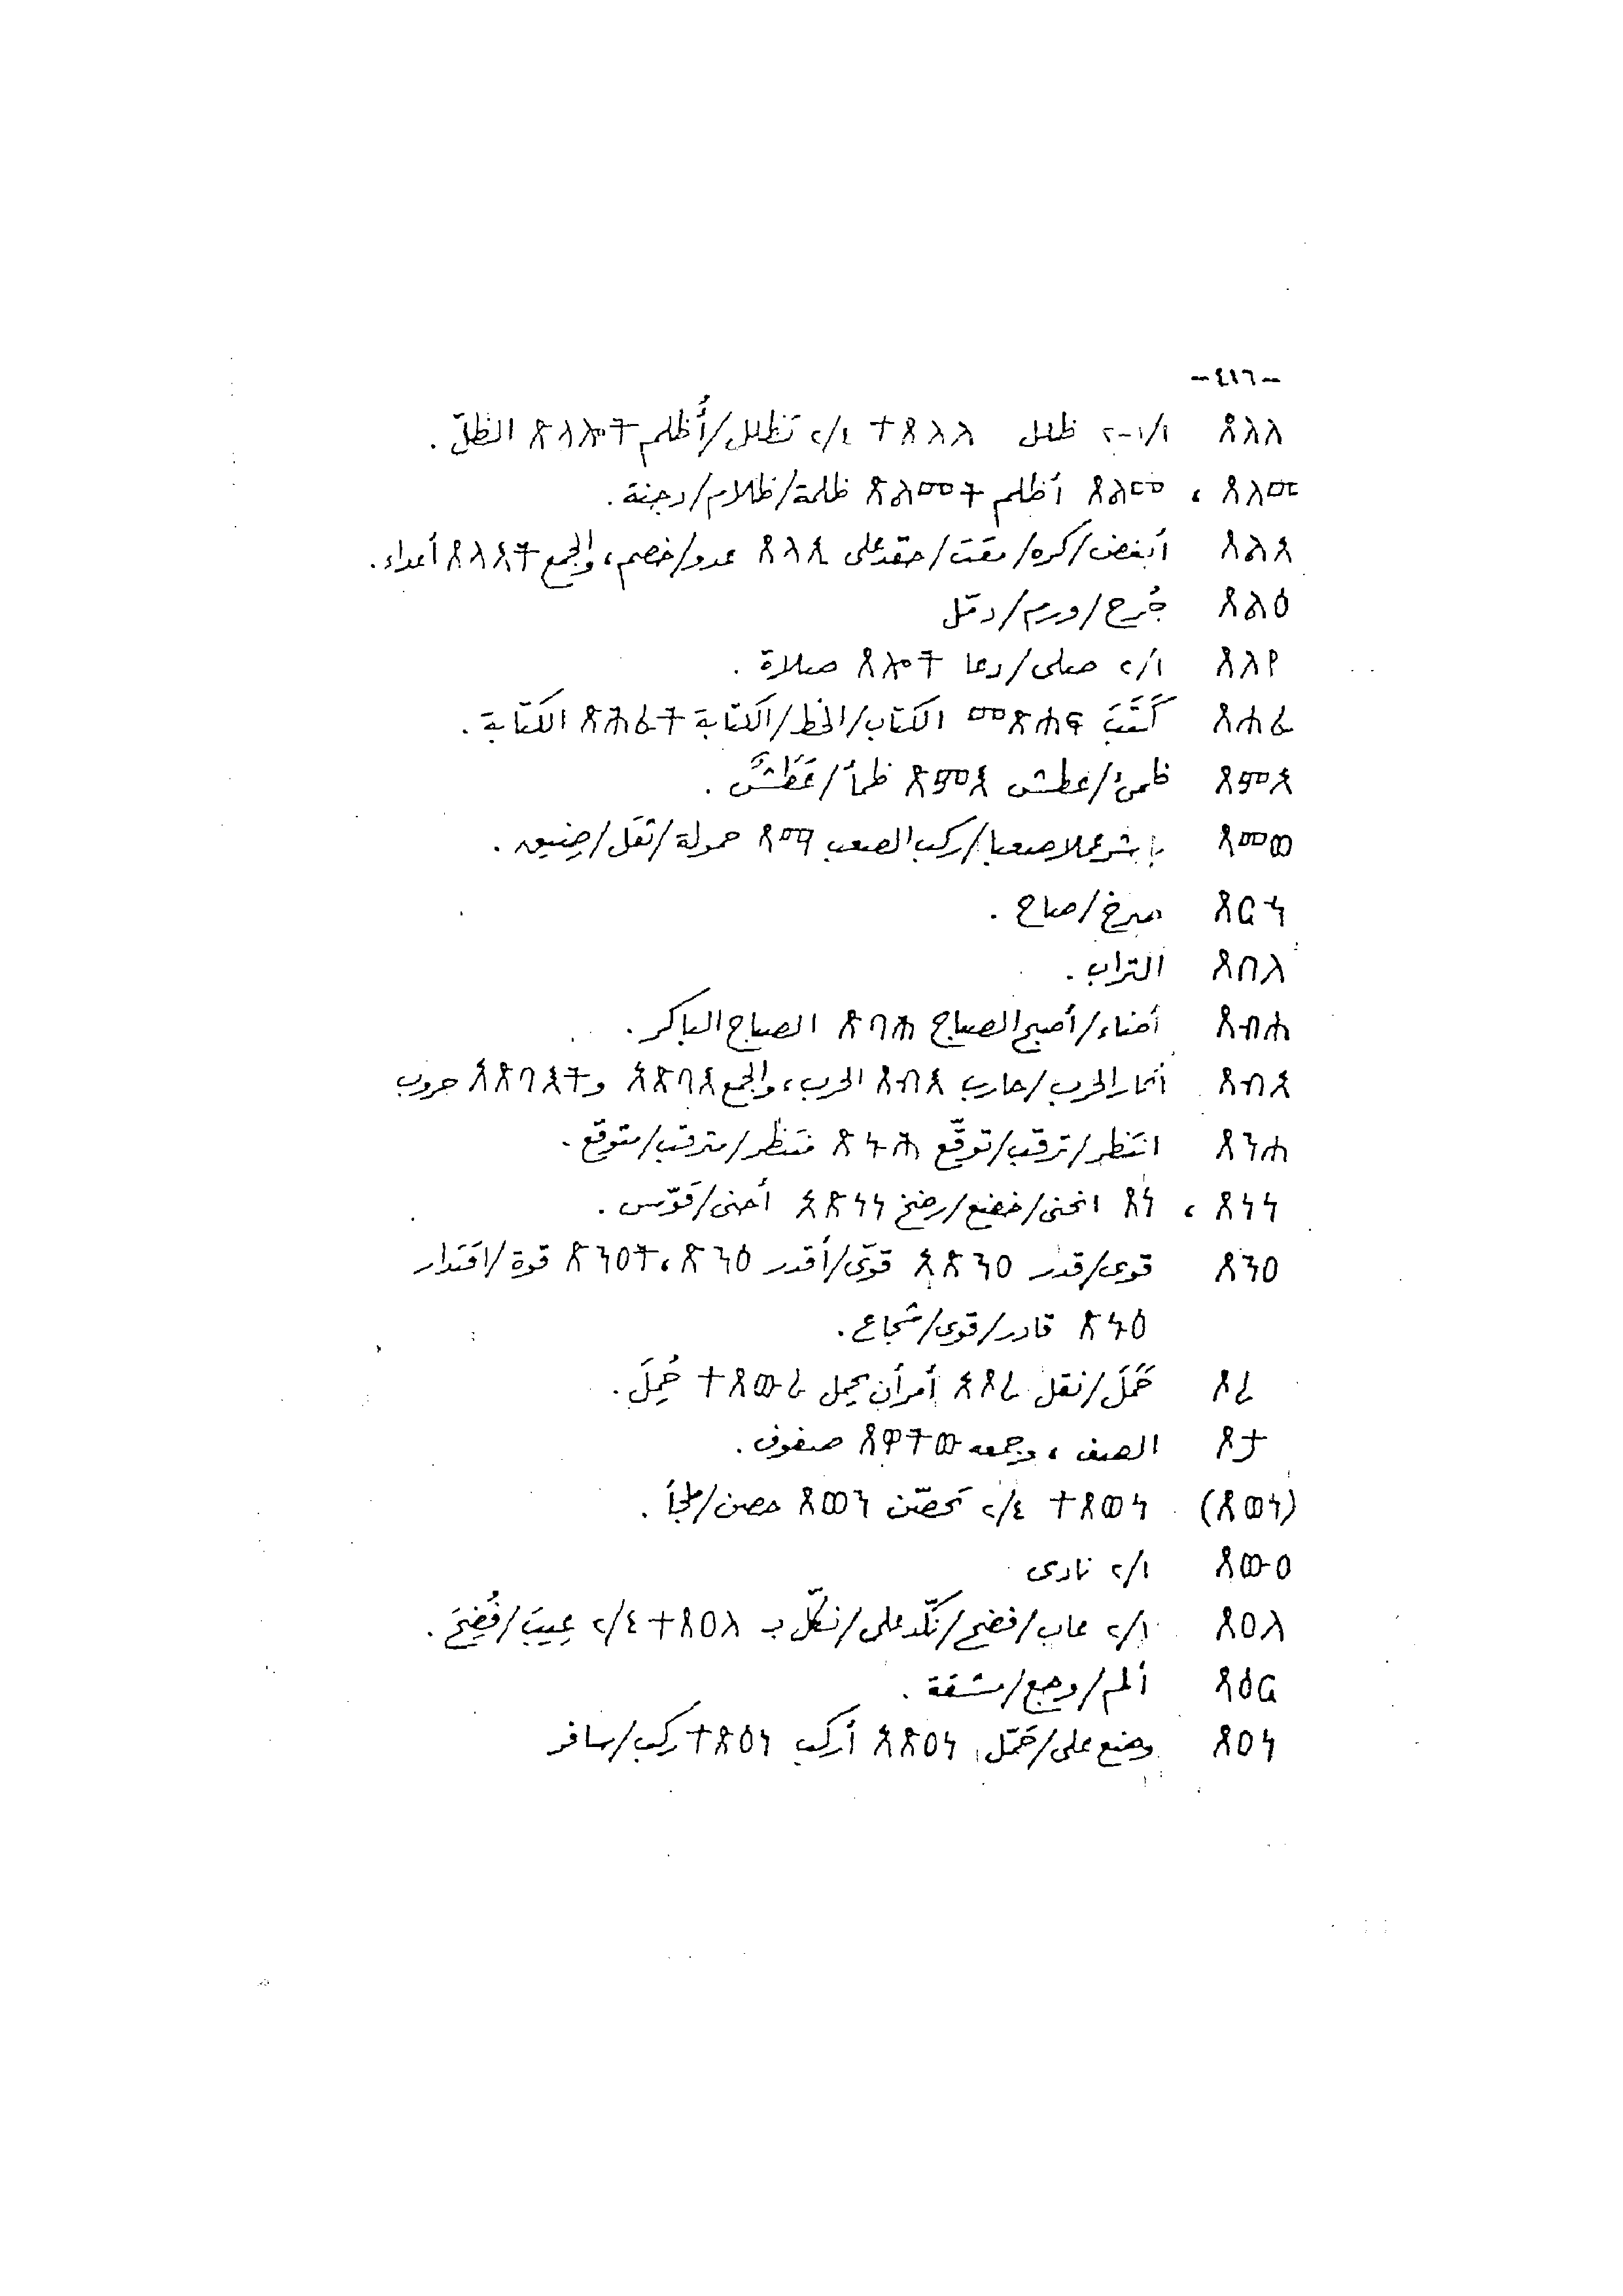 -٤١٦-
ጸለለ ١/١-٢ ظلل ተጸለለ ٤/٢ تظلل/أُظلم ጽላሎት الظلّ.
ጸልመ ، ጸልመ أظلم ጽልመት ظلمة/ظلام/دجنة.
ጸልአ أبغض/كره/مقت/حقد على ጸላኢ عدو/خصم، والجمع ጸላእት أعداء.
ጸልዕ جُرح/ورم/دمّل
ጸለየ ١/٢ صلى/دعا ጸሎት صلاة.
ጸሐፈ كَتَبَ መጽሐፍ الكتاب/الخط/الكتابة ጽሕፈት الكتابة.
ጸምአ ظمئ/عطش ጽምእ ظمأ/عَطَشٌ.
ጸመወ باشر عملا صعبا/ركب الصعب ጻማ حمولة/ثقل/ضيق.
ጸርኀ صرخ/صاح.
ጸበል التراب.
ጸብሐ أضاء/أصبح الصباح ጽባሕ الصباح الباكر.
ጸብአ أثار الحرب/حارب ጸብእ الحرب، والجمع አጽባእ و አጽባእት حروب
ጸንሐ انتظر/ترقب/توقّع ጽኑሕ منتظر/مترقب/متوقع.
ጸነነ ، ጸነ انحنى/خضع/رضخ አጽነነ أحنى/قَوّس.
ጸንዐ قوى/قدر አጽንዐ قوّى/أقدر ጽንዕ، ጽንዐት قوة/اقتدار
ጽኑዕ قادر/قوى/شجاع.
ጾረ حَمَلَ/نقل አጾረ أمر أن يحمل ተጸውረ حُمِلَ.
ጸፍ الصف ، وجمعه صفوف.
(ጸወነ) ተጸወነ ٤/٢ تحصّن ጸወን حصن/ملجأ.
ጸውዐ ١/٢ نادى
ጸዐለ ١/٢ عاب/فضح/نكّد على/نكّل بـ ተጸዐለ ٤/٢ عِيبَ/فُضِحَ.
ጻዕር ألم/وجع/مشقة.
ጸዐነ وضع على/حَمّل አጽዐነ أركب ተጽዕነ ركب/سافر